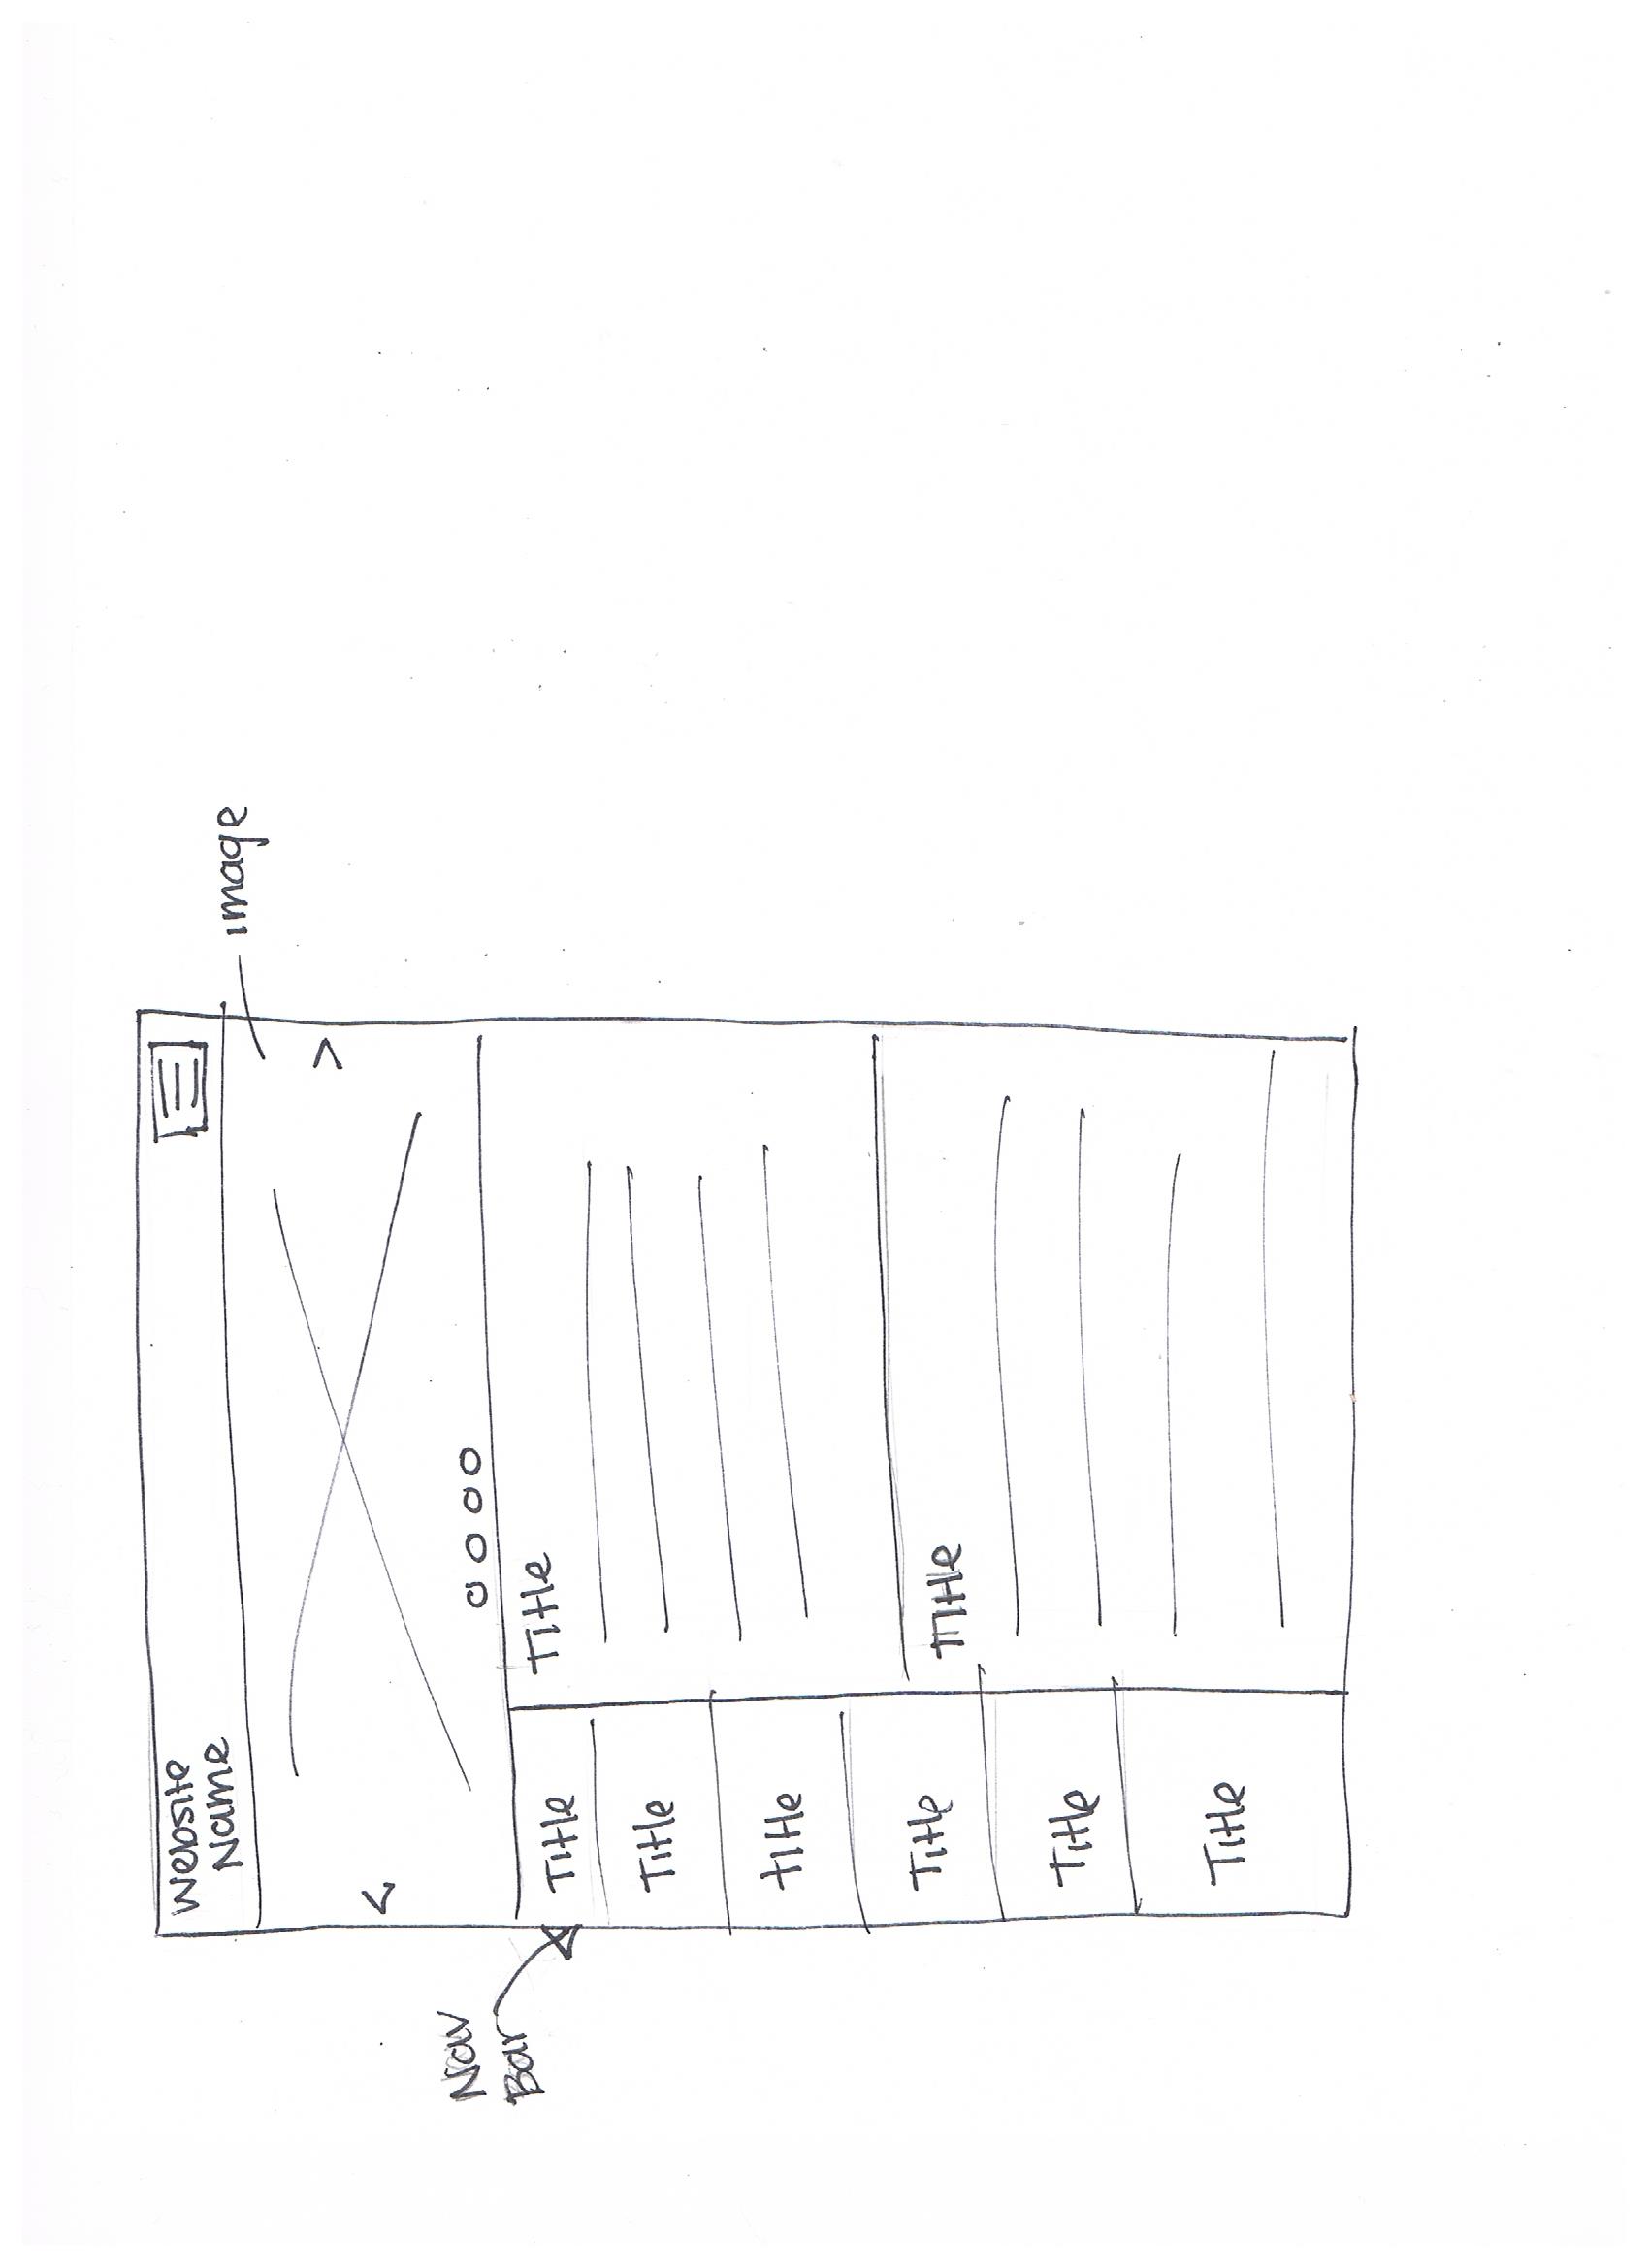 Website
Name
image
<
>
Nav
Bar
Title
Title
Title
title
Title
Title
Title
Title